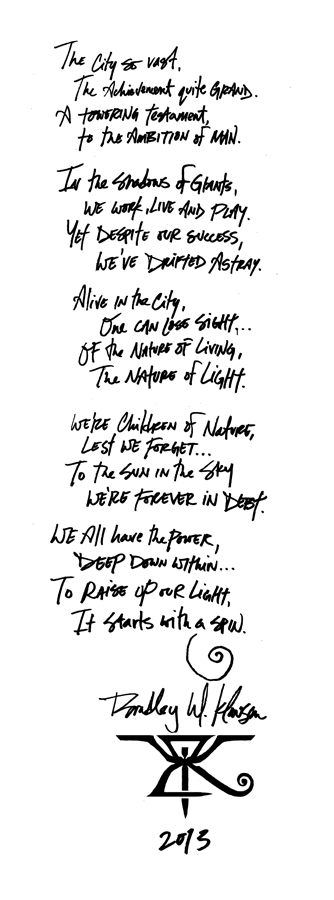 The City so vast,
The Achievement quite GRAND.
A towering testament,
to the AMBITION of MAN.
In the Shadows of Giants,
WE WORK, LIVE AND PLAY.
Yet DESPITE OUR SUCCESS,
WE'VE DRIFTED ASTRAY.
Alive in the City,
One CAN LOSE SIGHT...
OF the NATURE OF LIVING,
The NATURE of LIGHT.
WE'RE Children of NATURE,
LEST WE FORGET...
To the SUN in the Sky
WE'RE FOREVER IN DEBT.
WE All have the POWER,
DEEP DOWN WITHIN...
To RAISE UP OUR LIGHT,
It starts with a SPIN.
Bradley W.
2013